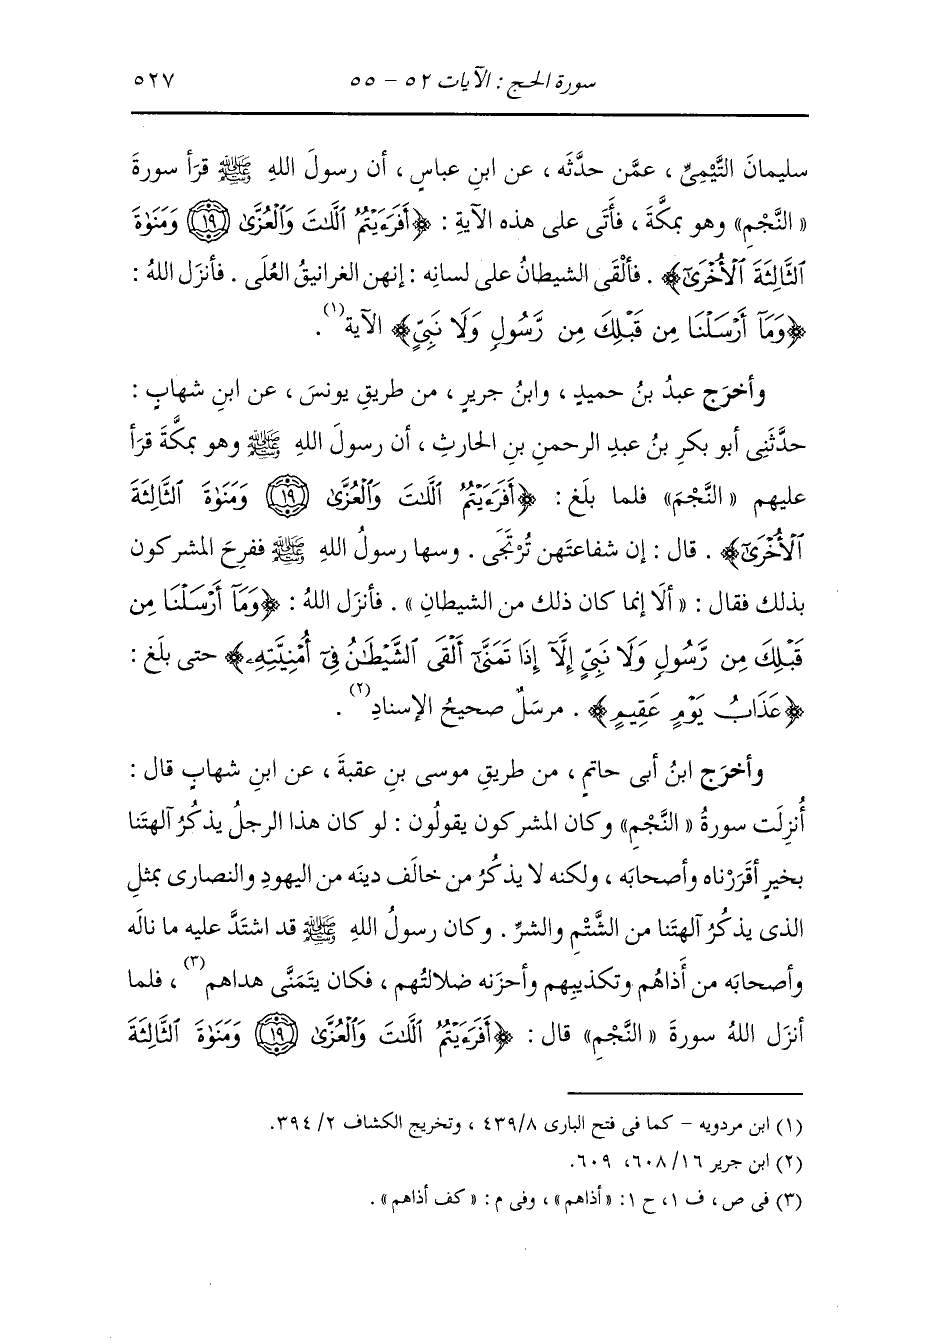 سورة الحج : الآيات ٥٢ - ٥٥ ٥٢٧
سليمانَ التَّيْمِيِّ ، عمَّن حدَّثَه ، عن ابنِ عباسٍ ، أن رسولَ اللهِ ﷺ قرَأ سورةَ
« النَّجْمِ» وهو بمكَّةَ ، فأَتَى على هذه الآيةِ : ﴿أَفَرَءَيْتُمُ ٱللَّٰتَ وَٱلْعُزَّىٰ ١٩ وَمَنَوٰةَ
ٱلثَّالِثَةَ ٱلْأُخْرَىٰٓ﴾ . فألْقَى الشيطانُ على لسانِه : إنهن الغرانيقُ العُلَى . فأنزَل اللهُ :
﴿وَمَآ أَرْسَلْنَا مِن قَبْلِكَ مِن رَّسُولٍ وَلَا نَبِيٍّ﴾ الآيةَ(١) .
وأخرَج عبدُ بنُ حميدٍ ، وابنُ جريرٍ ، من طريقِ يونسَ ، عن ابنِ شهابٍ :
حدَّثَنى أبو بكرِ بنُ عبدِ الرحمنِ بنِ الحارثِ ، أن رسولَ اللهِ ﷺ وهو بمكَّةَ قرَأ
عليهم « النَّجْمَ» فلما بلَغ : ﴿أَفَرَءَيْتُمُ ٱللَّٰتَ وَٱلْعُزَّىٰ ١٩ وَمَنَوٰةَ ٱلثَّالِثَةَ
ٱلْأُخْرَىٰٓ﴾ . قال : إن شفاعتَهن تُرْتَجَى . وسها رسولُ اللهِ ﷺ ففرِحَ المشركون
بذلك فقال : « ألَا إنما كان ذلك من الشيطانِ » . فأنزَل اللهُ : ﴿وَمَآ أَرْسَلْنَا مِن
قَبْلِكَ مِن رَّسُولٍ وَلَا نَبِيٍّ إِلَّآ إِذَا تَمَنَّىٰٓ أَلْقَى ٱلشَّيْطَٰنُ فِىٓ أُمْنِيَّتِهِۦ﴾ حتى بلَغ :
﴿عَذَابُ يَوْمٍ عَقِيمٍ﴾ . مرسَلٌ صحيحُ الإسنادِ(٢) .
وأخرَج ابنُ أبى حاتمٍ ، من طريقِ موسى بنِ عقبةَ ، عن ابنِ شهابٍ قال :
أُنزِلَت سورةُ « النَّجْمِ» وكان المشركون يقولُون : لو كان هذا الرجلُ يذكُرُ آلهتَنا
بخيرٍ أقرَرْناه وأصحابَه ، ولكنه لا يذكُرُ من خالَف دينَه من اليهودِ والنصارى بمثلِ
الذى يذكُرُ آلهتَنا من الشَّتْمِ والشرِّ . وكان رسولُ اللهِ ﷺ قد اشتَدَّ عليه ما نالَه
وأصحابَه من أَذاهُم وتكذيبِهم وأحزَنه ضلالتُهم ، فكان يتَمَنَّى هداهم(٣) ، فلما
أنزَل اللهُ سورةَ « النَّجْمِ» قال : ﴿أَفَرَءَيْتُمُ ٱللَّٰتَ وَٱلْعُزَّىٰ ١٩ وَمَنَوٰةَ ٱلثَّالِثَةَ
(١) ابن مردويه - كما فى فتح البارى ٤٣٩/٨ ، وتخريج الكشاف ٣٩٤/٢.
(٢) ابن جرير ٦٠٨/١٦، ٦٠٩.
(٣) فى ص ، ف ١، ح ١: « أذاهم» ، وفى م : « كف أذاهم» .